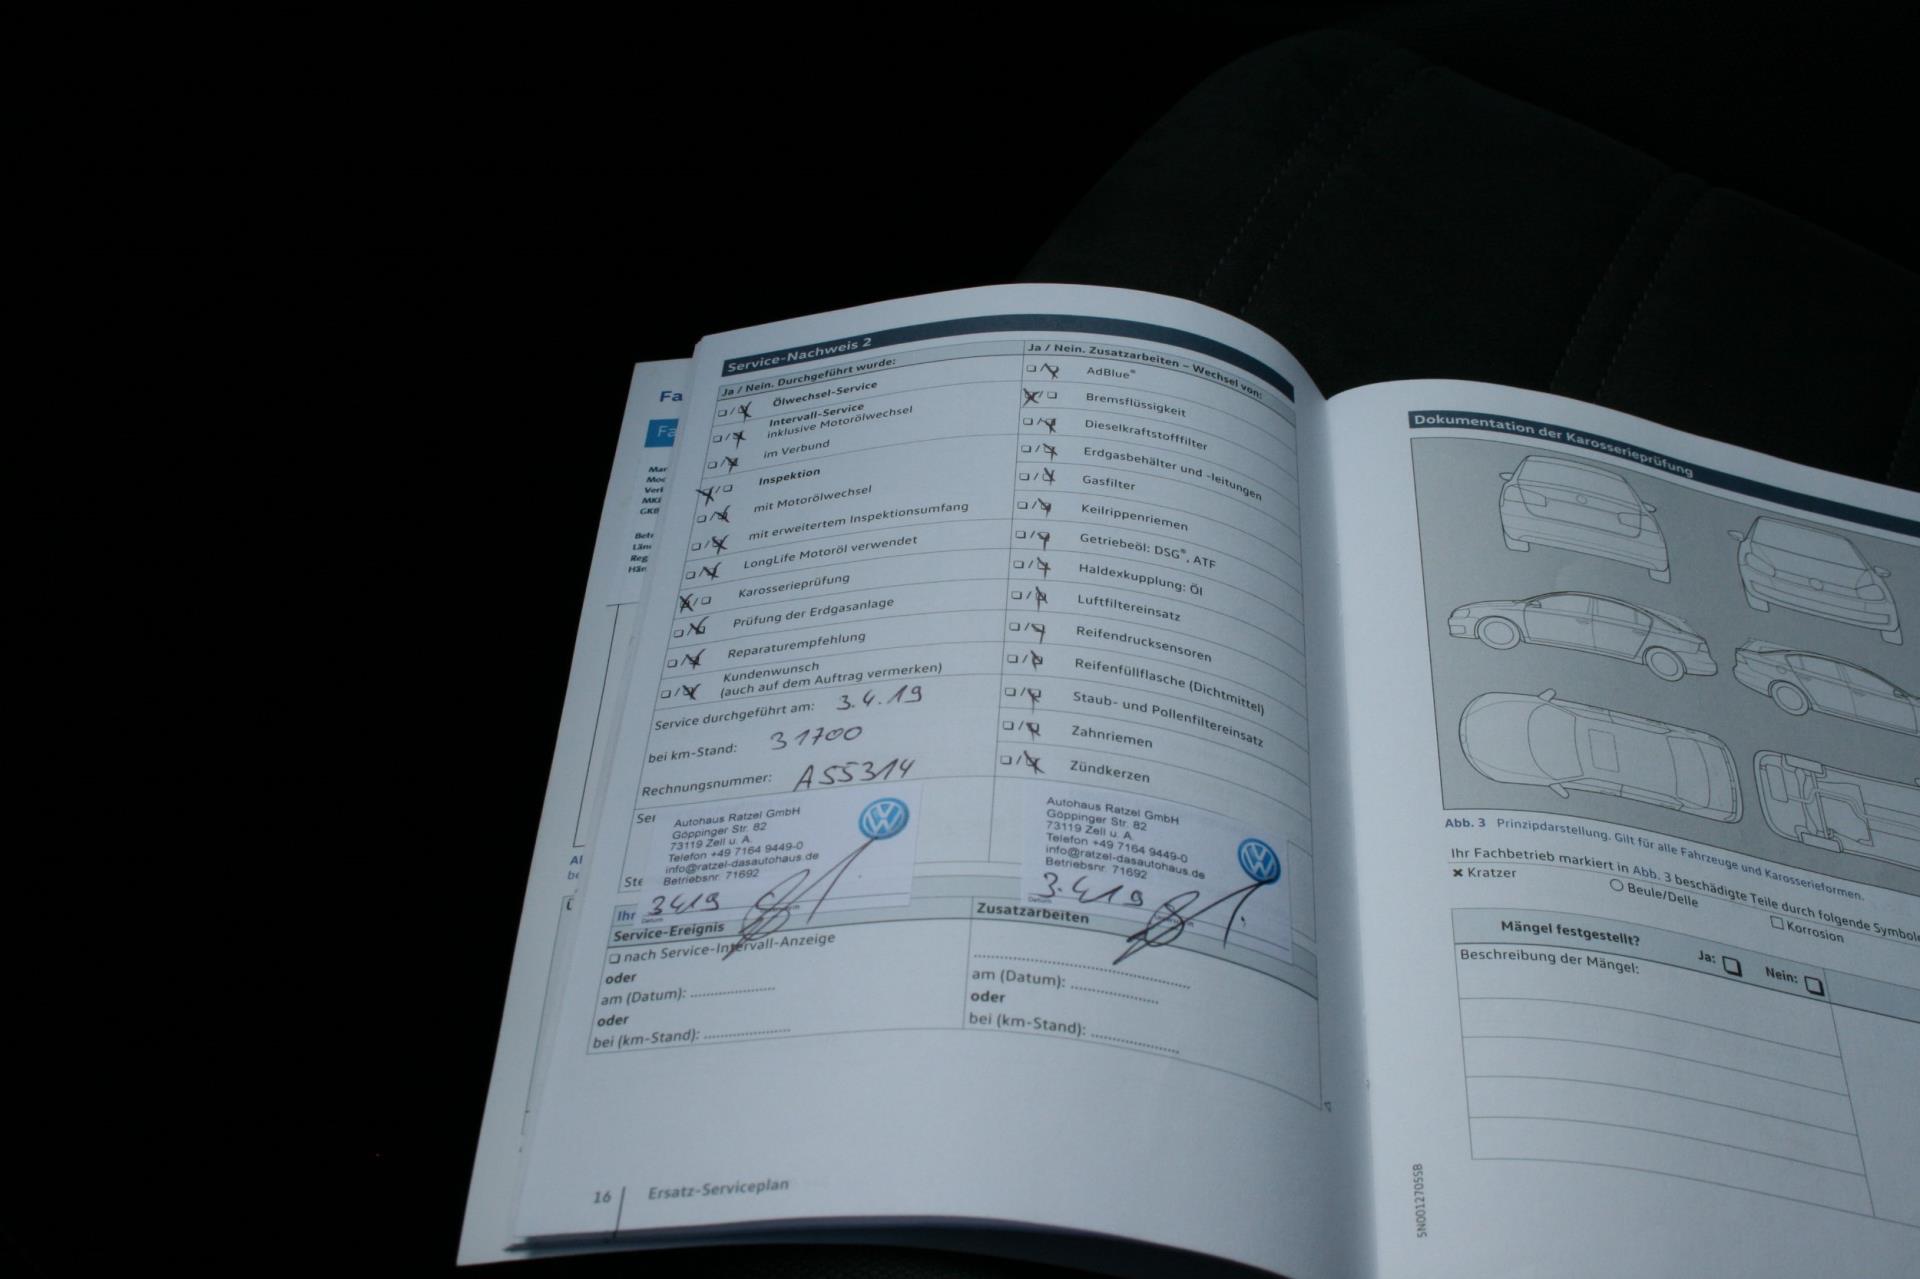 Service-Nachweis 2
Ja / Nein. Durchgeführt wurde:
Ölwechsel-Service
Intervall-Service
inklusive Motorölwechsel
im Verbund
Inspektion
mit Motorölwechsel
mit erweitertem Inspektionsumfang
LongLife Motoröl verwendet
Karosserieprüfung
Prüfung der Erdgasanlage
Reparaturempfehlung
Kundenwunsch
(auch auf dem Auftrag vermerken)
Service durchgeführt am: 3.4.19
bei km-Stand: 31700
Rechnungsnummer: A55314
Autohaus Ratzel GmbH
Göppinger Str. 82
73119 Zell u. A.
Telefon +49 7164 9449-0
info@ratzel-dasautohaus.de
Betriebsnr. 71692
3.4.19
Datum
Ihr
Service-Ereignis
nach Service-Intervall-Anzeige
oder
am (Datum): ....................
oder
bei (km-Stand): ....................
Ja / Nein. Zusatzarbeiten – Wechsel von:
AdBlue®
Bremsflüssigkeit
Dieselkraftstofffilter
Erdgasbehälter und -leitungen
Gasfilter
Keilrippenriemen
Getriebeöl: DSG®, ATF
Haldexkupplung: Öl
Luftfiltereinsatz
Reifendrucksensoren
Reifenfüllflasche (Dichtmittel)
Staub- und Pollenfiltereinsatz
Zahnriemen
Zündkerzen
Autohaus Ratzel GmbH
Göppinger Str. 82
73119 Zell u. A.
Telefon +49 7164 9449-0
info@ratzel-dasautohaus.de
Betriebsnr. 71692
3.4.19
Datum
Zusatzarbeiten
am (Datum): ....................
oder
bei (km-Stand): ....................
16 Ersatz-Serviceplan
Dokumentation der Karosserieprüfung
Abb. 3 Prinzipdarstellung. Gilt für alle Fahrzeuge und Karosserieformen.
Ihr Fachbetrieb markiert in Abb. 3 beschädigte Teile durch folgende Symbole
Kratzer
Beule/Delle
Korrosion
Mängel festgestellt? Ja: Nein:
Beschreibung der Mängel:
5N0012705SB